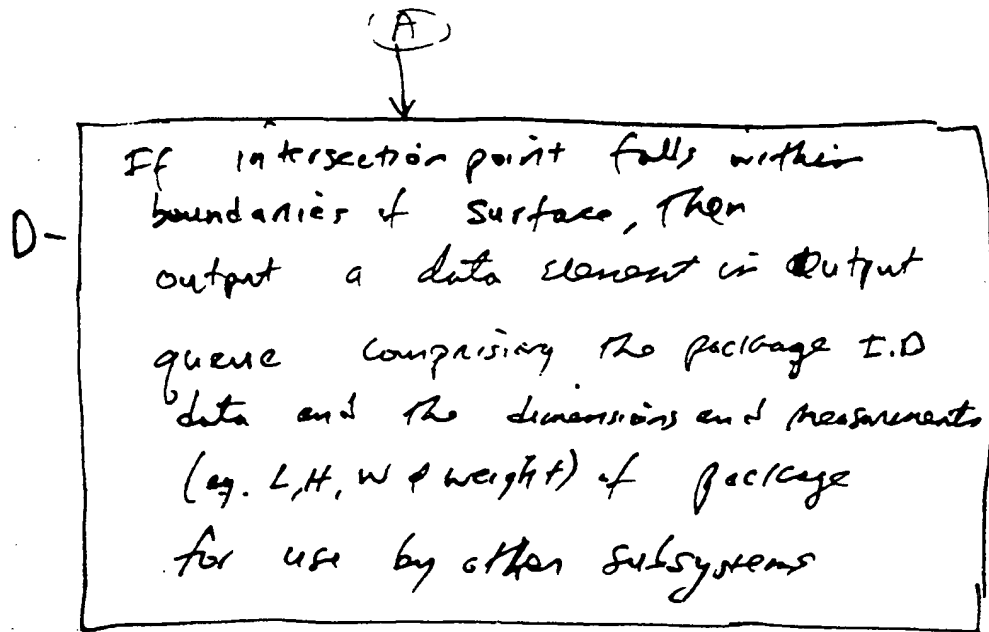 A
D-
If intersection point falls within
boundaries of surface, Then
output a data element in Output
queue comprising the package I.D
data and the dimensions and measurements
(eg. L,H, W & weight) of package
for use by other subsystems